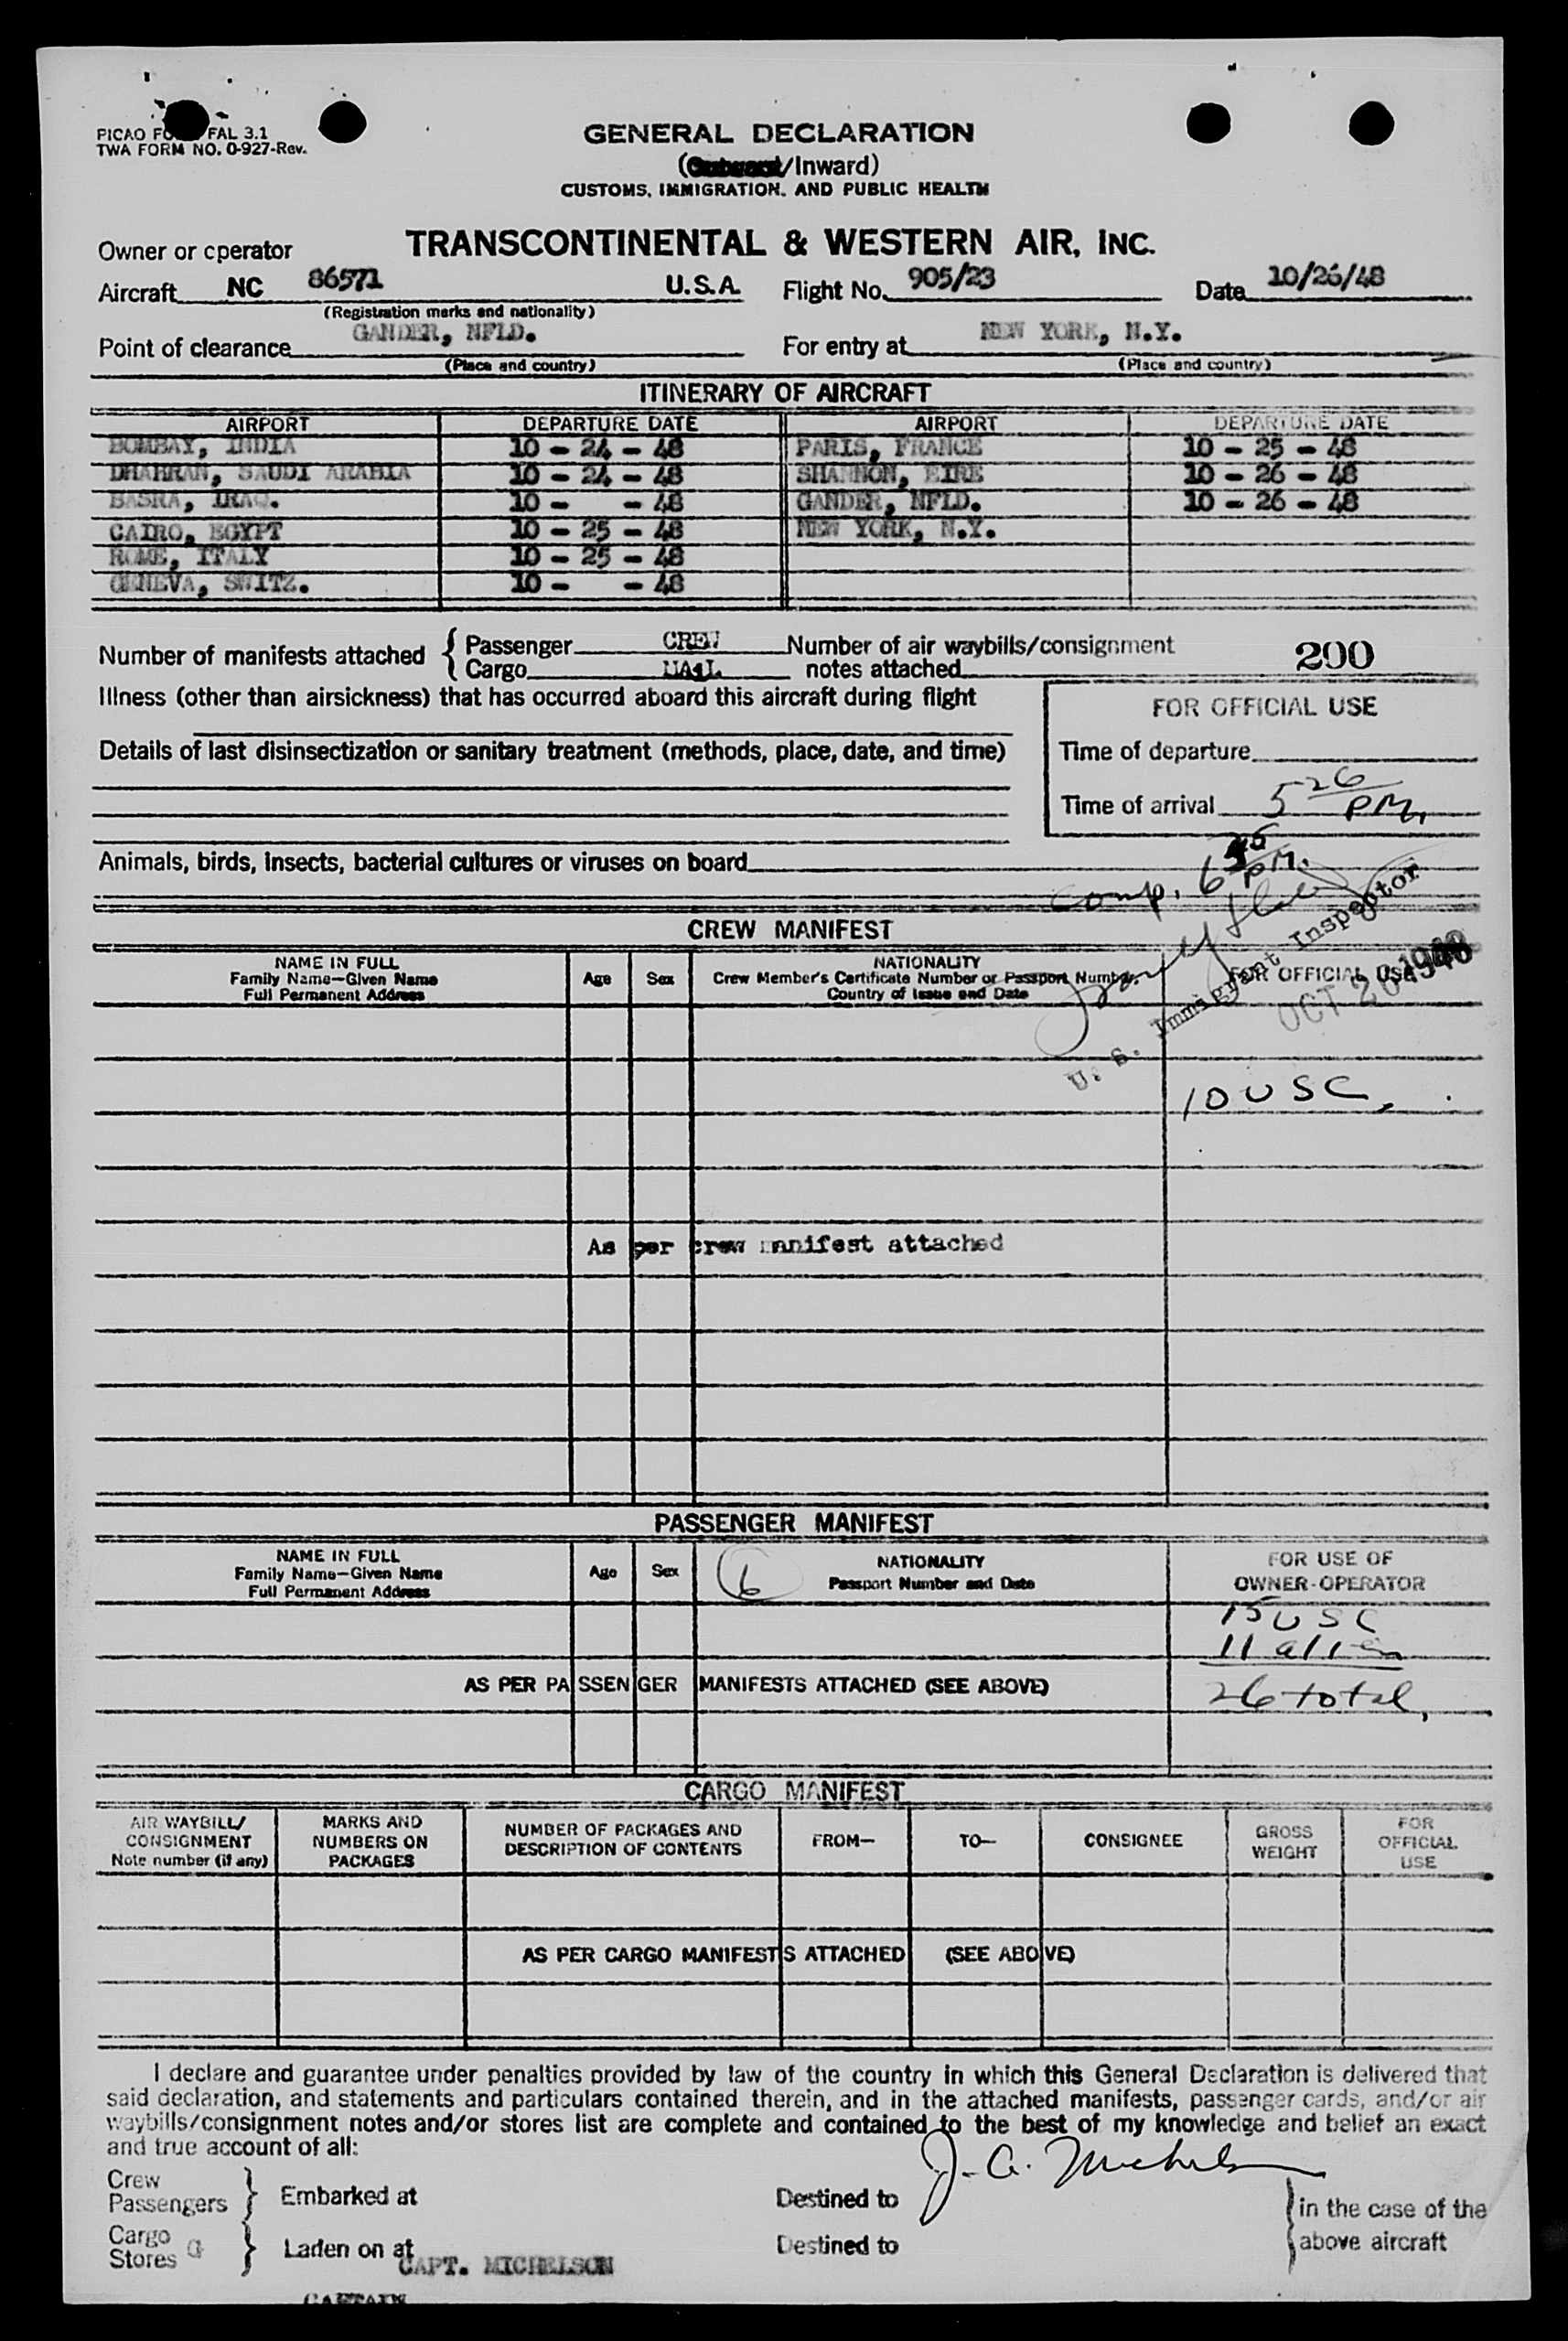 PICAO FO FAL 3.1
TWA FORM NO. 0-927-Rev.
GENERAL DECLARATION
(Outward/Inward)
CUSTOMS, IMMIGRATION, AND PUBLIC HEALTH
Owner or operator TRANSCONTINENTAL & WESTERN AIR, INC.
Aircraft NC 86571 U.S.A. Flight No. 905/23 Date 10/26/48
(Registration marks and nationality)
Point of clearance GANDER, NFLD. For entry at NEW YORK, N.Y.
(Place and country) (Place and country)
ITINERARY OF AIRCRAFT
AIRPORT DEPARTURE DATE AIRPORT DEPARTURE DATE
BOMBAY, INDIA 10 - 24 - 48 PARIS, FRANCE 10 - 25 - 48
DHAHRAN, SAUDI ARABIA 10 - 24 - 48 SHANNON, EIRE 10 - 26 - 48
BASRA, IRAQ. 10 - - 48 GANDER, NFLD. 10 - 26 - 48
CAIRO, EGYPT 10 - 25 - 48 NEW YORK, N.Y.
ROME, ITALY 10 - 25 - 48
GENEVA, SWITZ. 10 - - 48
Number of manifests attached { Passenger CREW Number of air waybills/consignment
Cargo MAIL notes attached 200
Illness (other than airsickness) that has occurred aboard this aircraft during flight
FOR OFFICIAL USE
Details of last disinsectization or sanitary treatment (methods, place, date, and time)
Time of departure
Time of arrival 5 26 PM.
Animals, birds, insects, bacterial cultures or viruses on board
Comp. 6 PM.
U. S. Immigrant Inspector
CREW MANIFEST
NAME IN FULL
Family Name—Given Name
Full Permanent Address
Age Sex
NATIONALITY
Crew Member's Certificate Number or Passport Number
Country of Issue and Date
FOR OFFICIAL USE
OCT 26 1948
10 USC.
As per crew manifest attached
PASSENGER MANIFEST
NAME IN FULL
Family Name—Given Name
Full Permanent Address
Age Sex
6
NATIONALITY
Passport Number and Date
FOR USE OF
OWNER-OPERATOR
15 USC
11 alien
AS PER PASSENGER MANIFESTS ATTACHED (SEE ABOVE)
26 total,
CARGO MANIFEST
AIR WAYBILL/
CONSIGNMENT
Note number (if any)
MARKS AND
NUMBERS ON
PACKAGES
NUMBER OF PACKAGES AND
DESCRIPTION OF CONTENTS
FROM—
TO—
CONSIGNEE
GROSS
WEIGHT
FOR
OFFICIAL
USE
AS PER CARGO MANIFESTS ATTACHED (SEE ABOVE)
I declare and guarantee under penalties provided by law of the country in which this General Declaration is delivered that
said declaration, and statements and particulars contained therein, and in the attached manifests, passenger cards, and/or air
waybills/consignment notes and/or stores list are complete and contained to the best of my knowledge and belief an exact
and true account of all:
J. A. Michelson
Crew
Passengers } Embarked at Destined to } in the case of the
Cargo
Stores } Laden on at Destined to above aircraft
CAPT. MICHELSON
CAPTAIN